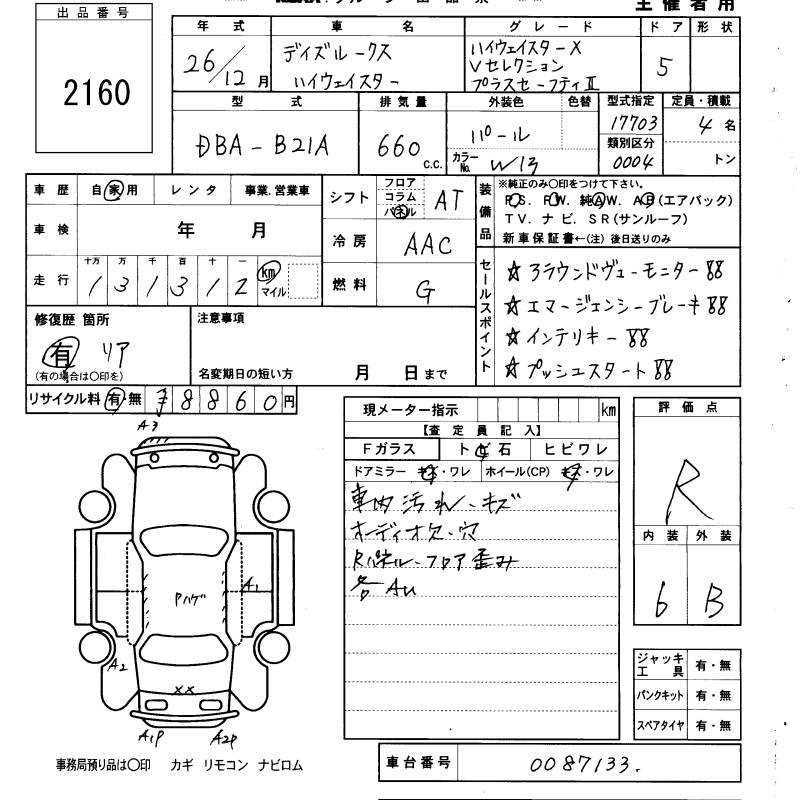 主催者用
出品番号
2160
年式 車名 グレード ドア 形状
26/12月 ディズルークス ハイウェイスター ハイウェイスターX Vセレクション プラスセーフティⅡ 5
型式 排気量 外装色 色替 型式指定 定員・積載
DBA-B21A 660 c.c. パール 17703 4名
カラーNo. W13 類別区分 0004 トン
車歴 自家用 レンタ 事業.営業車
シフト フロア コラム パネル AT
装備品 ※純正のみ○印をつけて下さい。
P.S. P.W. 純A.W. A.B(エアバック)
T.V. ナビ. S.R(サンルーフ)
新車保証書←(注) 後日送りのみ
車検 年 月
冷房 AAC
走行 十万 万 千 百 十 一
1 3 1 3 1 2 km マイル
燃料 G
セールスポイント
☆アラウンドヴューモニター
☆エマージェンシーブレーキ
☆インテリキー
☆プッシュスタート
修復歴 箇所
有 リア
(有の場合は○印を)
注意事項
名変期日の短い方 月 日まで
リサイクル料 有 無 ¥8860円
現メーター指示 km
【査定員記入】
Fガラス トビ石 ヒビワレ
ドアミラー キズ・ワレ ホイール(CP) キズ・ワレ
車内汚れ・キズ
オーディオ欠・穴
Rパネル・フロア歪み
各AU
評価点
R
内装 外装
6 B
A3
A1
Pハゲ
A2
XX
A1P A2P
ジャッキ工具 有・無
パンクキット 有・無
スペアタイヤ 有・無
事務局預り品は○印 カギ リモコン ナビロム
車台番号 0087133.